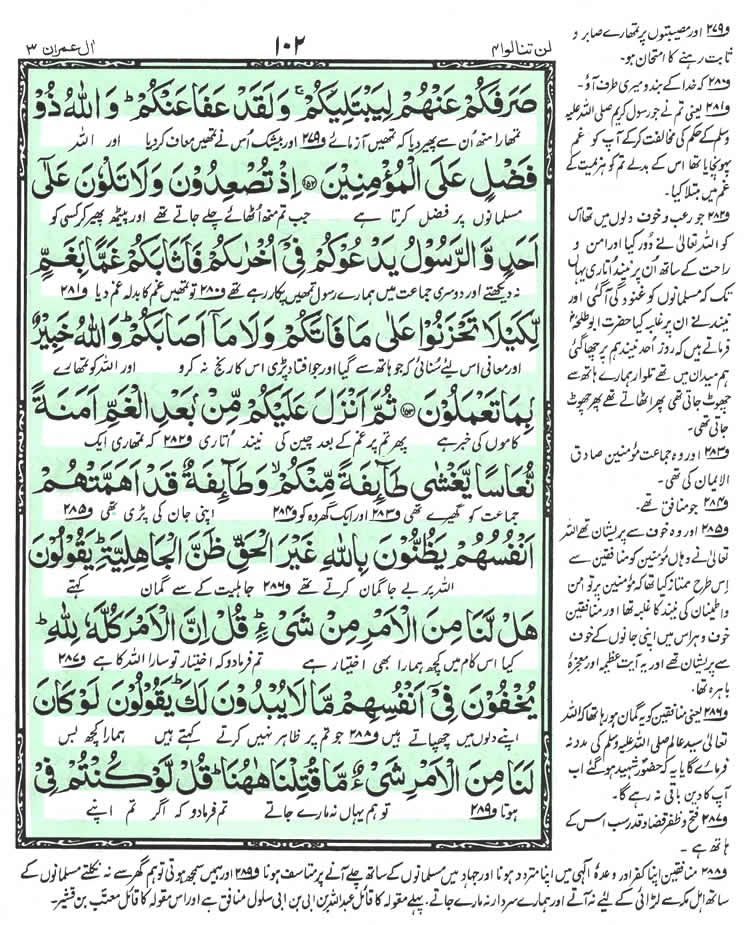 لن تنالوا ۴
۱۰۲
اٰل عمران ۳
صَرَفَكُمْ عَنْهُمْ لِيَبْتَلِيَكُمْ ۚ وَلَقَدْ عَفَا عَنْكُمْ ؕ وَاللّٰهُ ذُوْ
تمھارا منھ اُن سے پھیر دیا کہ تمھیں آزمائے و۲۷۹ اور بیشک اُس نے تمھیں معاف کردیا اور اللہ
فَضْلٍ عَلَى الْمُؤْمِنِيْنَ ﴿۱۵۲﴾ اِذْ تُصْعِدُوْنَ وَلَا تَلْوٗنَ عَلٰٓى
مسلمانوں پر فضل کرتا ہے جب تم منھ اُٹھائے چلے جاتے تھے اور پیٹھ پھیر کر کسی کو
اَحَدٍ وَّ الرَّسُوْلُ يَدْعُوْكُمْ فِيْۤ اُخْرٰىكُمْ فَاَثَابَكُمْ غَمًّۢا بِغَمٍّ
نہ دیکھتے اور دوسری جماعت میں ہمارے رسول تمھیں پکار رہے تھے و۲۸۰ تو تمھیں غم کا بدلہ غم دیا و۲۸۱
لِّكَيْلَا تَحْزَنُوْا عَلٰى مَا فَاتَكُمْ وَلَا مَاۤ اَصَابَكُمْ ؕ وَاللّٰهُ خَبِيْرٌۢ
اور معافی اس لیئے سُنائی کہ جو ہاتھ سے گیا اور جو افتاد پڑی اس کا رنج نہ کرو اور اللہ کو تمھارے
بِمَا تَعْمَلُوْنَ ﴿۱۵۳﴾ ثُمَّ اَنْزَلَ عَلَيْكُمْ مِّنْۢ بَعْدِ الْغَمِّ اَمَنَةً
کاموں کی خبر ہے پھر تم پر غم کے بعد چین کی نیند اُتاری و۲۸۲ کہ تمھاری ایک
نُّعَاسًا يَّغْشٰى طَآئِفَةً مِّنْكُمْ ۙ وَطَآئِفَةٌ قَدْ اَهَمَّتْهُمْ
جماعت کو گھیرے تھی و۲۸۳ اور ایک گروہ کو و۲۸۴ اپنی جان کی پڑی تھی و۲۸۵
اَنْفُسُهُمْ يَظُنُّوْنَ بِاللّٰهِ غَيْرَ الْحَقِّ ظَنَّ الْجَاهِلِيَّةِ ؕ يَقُوْلُوْنَ
اللہ پر بے جا گمان کرتے تھے و۲۸۶ جاہلیت کے سے گمان کہتے
هَلْ لَّنَا مِنَ الْاَمْرِ مِنْ شَيْءٍ ؕ قُلْ اِنَّ الْاَمْرَ كُلَّهٗ لِلّٰهِ ؕ
کیا اس کام میں کچھ ہمارا بھی اختیار ہے تم فرما دو کہ اختیار تو سارا اللہ کا ہے و۲۸۷
يُخْفُوْنَ فِيْۤ اَنْفُسِهِمْ مَّا لَا يُبْدُوْنَ لَكَ ؕ يَقُوْلُوْنَ لَوْ كَانَ
اپنے دلوں میں چھپاتے ہیں و۲۸۸ جو تم پر ظاہر نہیں کرتے کہتے ہیں ہمارا کچھ بس
لَنَا مِنَ الْاَمْرِ شَيْءٌ مَّا قُتِلْنَا هٰهُنَا ؕ قُلْ لَّوْ كُنْتُمْ فِيْ
ہوتا و۲۸۹ تو ہم یہاں نہ مارے جاتے تم فرما دو کہ اگر تم اپنے
و۲۷۹ اور مصیبتوں پر تمھارے صابر و
ثابت رہنے کا امتحان ہو۔
و۲۸۰ کہ خدا کے بندو میری طرف آؤ۔
و۲۸۱ یعنی تم نے جو رسول کریم صلی اللہ علیہ
وسلم کے حکم کی مخالفت کرکے آپ کو غم
پہونچایا تھا اس کے بدلے تم کو ہزیمت کے
غم میں مبتلا کیا۔
و۲۸۲ جو رعب و خوف دلوں میں تھا اس
کو اللہ تعالیٰ نے دُور کیا اور امن و
راحت کے ساتھ اُن پر نیند اُتاری یہاں
تک کہ مسلمانوں کو غنودگی آگئی اور
نیند نے ان پر غلبہ کیا حضرت ابوطلحہ
فرماتے ہیں کہ روز اُحد نیند ہم پر چھا گئی
ہم میدان میں تھے تلوار ہمارے ہاتھ سے
چھوٹ جاتی تھی پھر اٹھاتے تھے پھر چھوٹ
جاتی تھی۔
و۲۸۳ اور وہ جماعت مؤمنین صادق
الایمان کی تھی۔
و۲۸۴ جو منافق تھے۔
و۲۸۵ اور وہ خوف سے پریشان تھے اللہ
تعالیٰ نے وہاں مؤمنین کو منافقین سے
اِس طرح ممتاز کیا تھا کہ مؤمنین پر تو امن
و اطمینان کی نیند کا غلبہ تھا اور منافقین
خوف و ہراس میں اپنی جانوں کے خوف
سے پریشان تھے اور یہ آیت عظیمہ اور معجزہ
باہرہ تھا۔
و۲۸۶ یعنی منافقین کو یہ گمان ہو رہا تھا کہ اللہ
تعالیٰ سید عالم صلی اللہ علیہ وسلم کی مدد نہ
فرمائے گا یا یہ کہ حضور شہید ہوگئے اب
آپ کا دین باقی نہ رہے گا۔
و۲۸۷ فتح و ظفر قضا و قدر سب اس کے
ہاتھ ہے۔
و۲۸۸ منافقین اپنا کفر اور وعدۂ الٰہی میں اپنا متردد ہونا اور جہاد میں مسلمانوں کے ساتھ چلے آنے پر متاسف ہونا و۲۸۹ اور ہمیں سمجھ ہوتی تو ہم گھر سے نہ نکلتے مسلمانوں کے
ساتھ اہل مکہ سے لڑائی کے لیئے نہ آتے اور ہمارے سردار نہ مارے جاتے۔ پہلے مقولہ کا قائل عبداللہ بن ابی بن سلول منافق ہے اور اس مقولہ کا قائل معتب بن قشیر۔